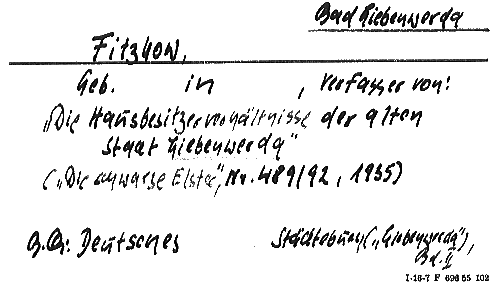 Bad Liebenwerda
Fitzkow,
Geb. in , Verfasser von:
„Die Hausbesitzerverhältnisse der alten
Stadt Liebenwerda"
(„Die schwarze Elster", Nr. 489/92, 1935)
Deutsches Städtebuch („Liebenwerda"),
Bd. II
I-16-7 F 696 55 102